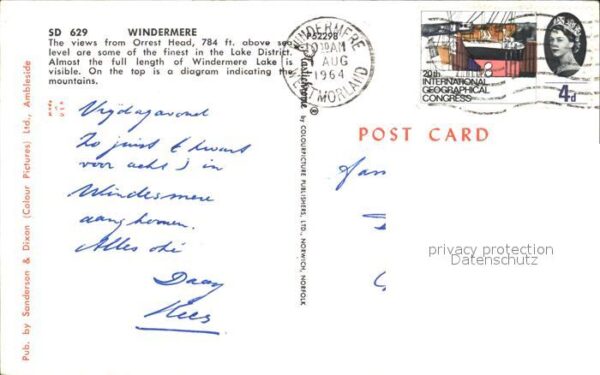 SD 629 WINDERMERE
The views from Orrest Head, 784 ft. above sea
level are some of the finest in the Lake District.
Almost the full length of Windermere Lake is
visible. On the top is a diagram indicating the
mountains.
Vrijdagavond
Zo juist (kwart
voor acht) in
Windermere
aangekomen.
Alles oké
Daag
Kees
Pub. by Sanderson & Dixon (Colour Pictures) Ltd., Ambleside
P52298
Plastichrome ®
by COLOURPICTURE PUBLISHERS, LTD., NORWICH, NORFOLK
WINDERMERE
AUG
1964
WESTMORLAND
20th
INTERNATIONAL
GEOGRAPHICAL
CONGRESS
4d
POST CARD
privacy protection
Datenschutz